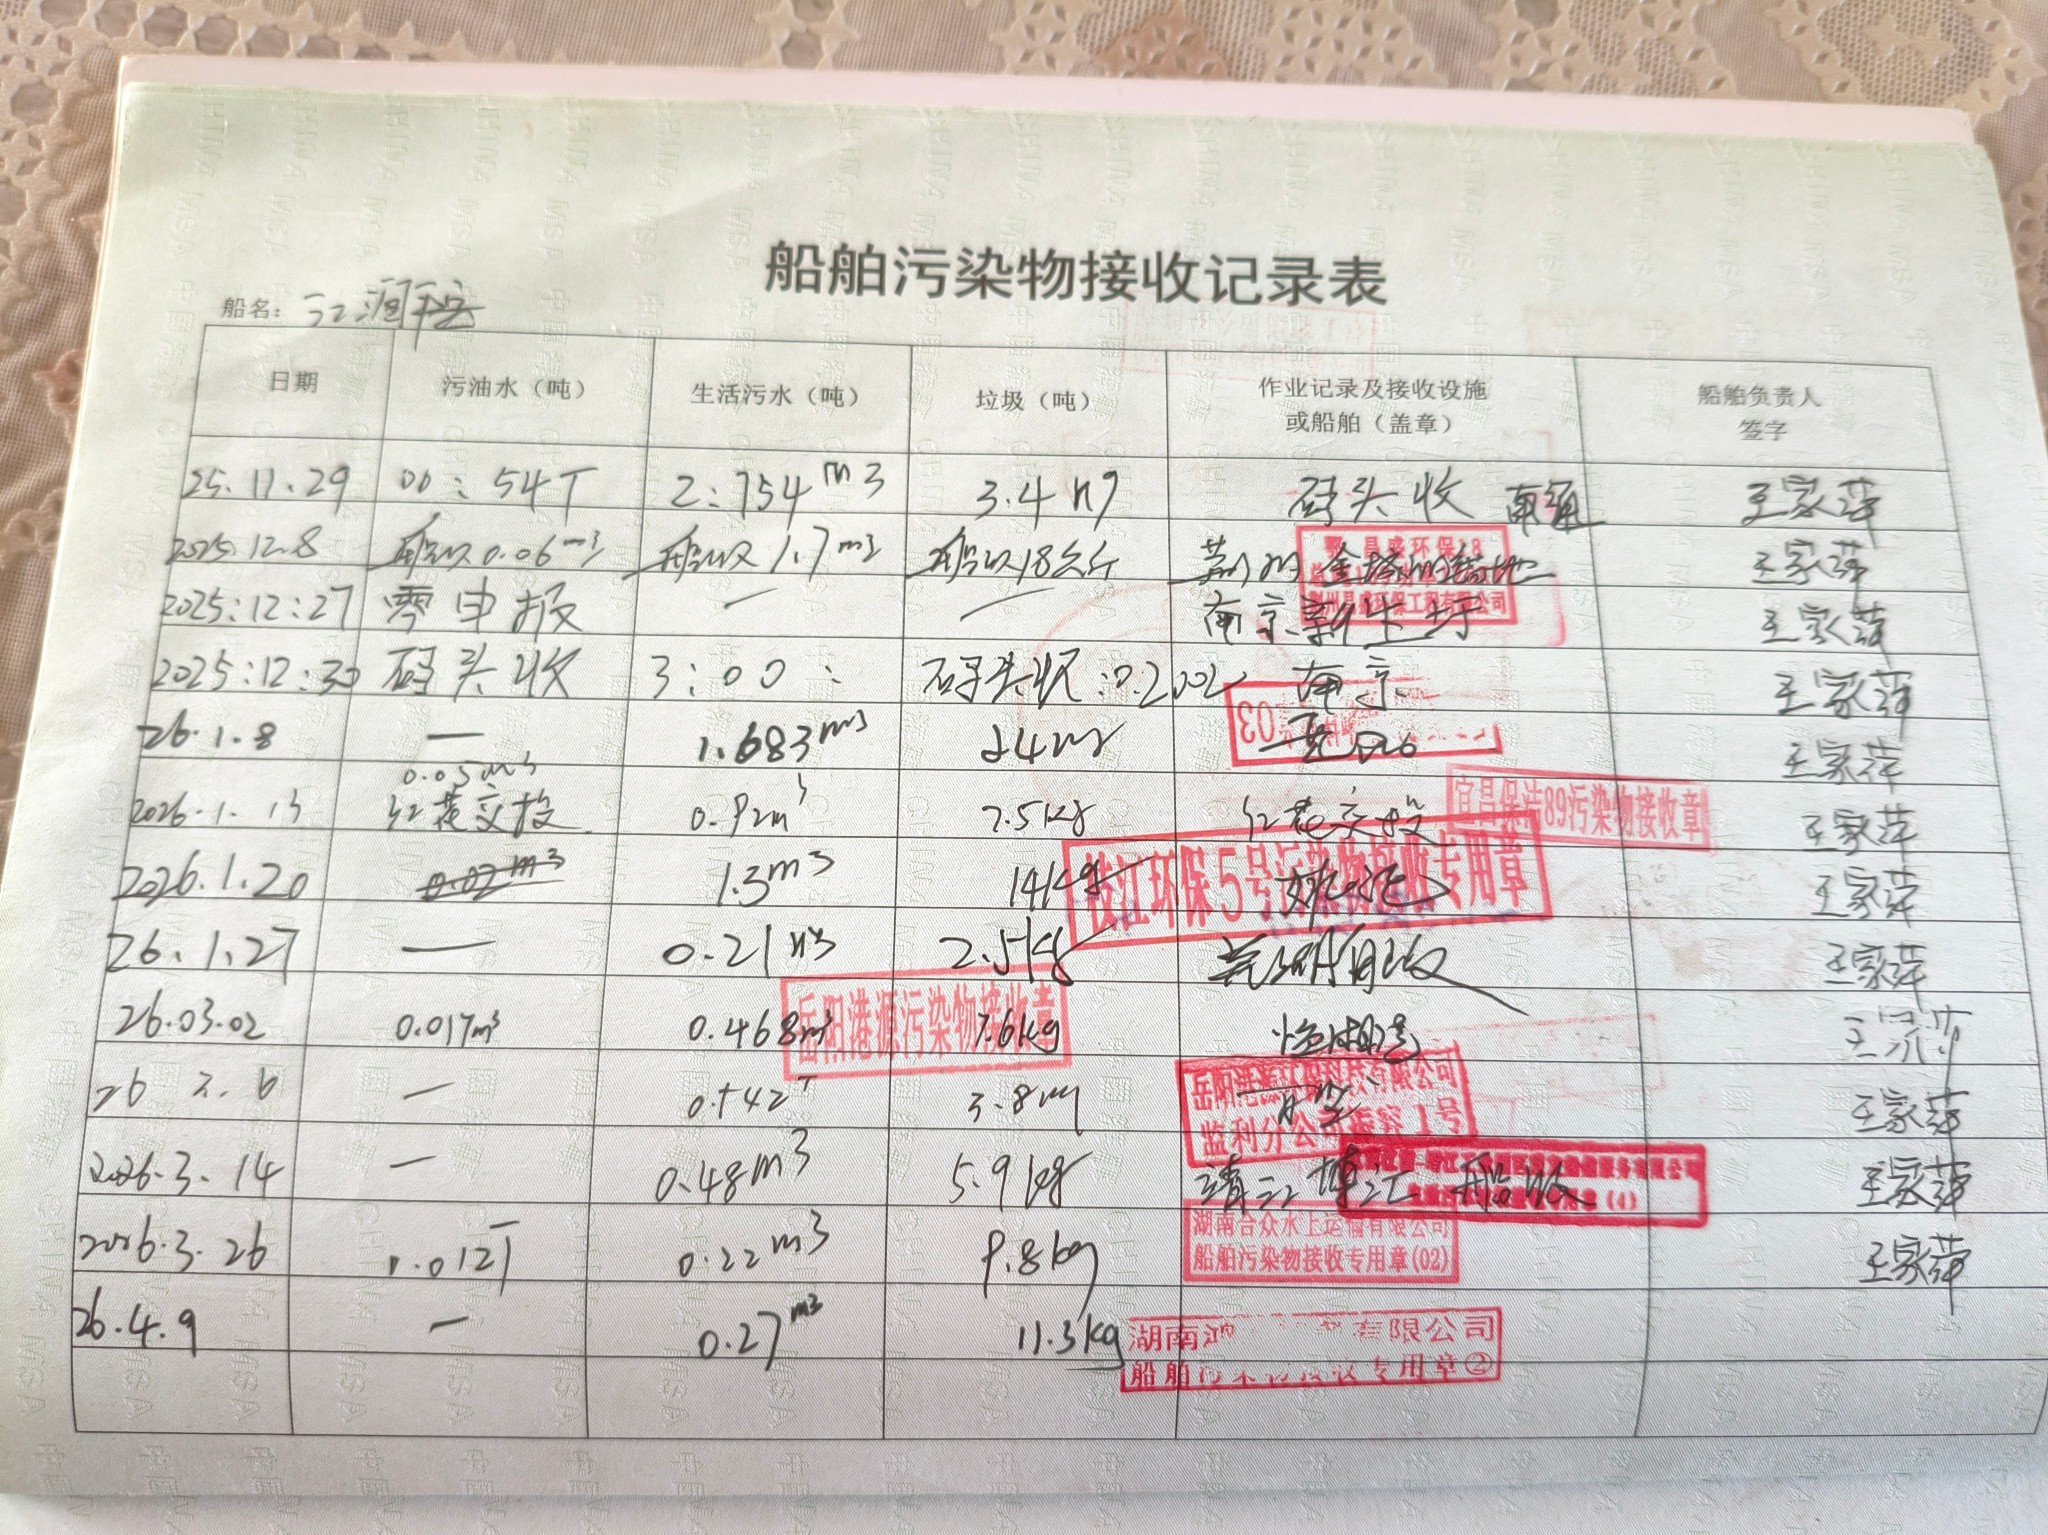 船舶污染物接收记录表
船名: 江润平安
日期 污油水（吨） 生活污水（吨） 垃圾（吨） 作业记录及接收设施或船舶（盖章） 船舶负责人签字
25.11.29 00:54T 2:754m3 3.4 码头收 南通 王家萍
2025.12.8 船收0.06m3 船收1.7m3 船收18公斤 荆州 王家萍
2025:12:27 零申报 — — 南京新生圩 王家萍
2025:12:30 码头收 3:00: 码头收:0.2 南京 王家萍
26.1.8 — 1.683m3 王家萍
0.05m3
2026.1.13 红花交投 0.92m3 2.5kg 红花交投 王家萍
2026.1.20 0.02m3 1.3m3 14kg 王家萍
26.1.27 — 0.21m3 2.5kg 王家萍
26.03.02 0.017m3 0.468m3 7.6kg
26 3.6 — 0.542T 3.8 王家萍
2026.3.14 — 0.48m3 5.9kg 靖江博汇 船收 王家萍
2026.3.26 0.012T 0.22m3 9.8kg 王家萍
26.4.9 — 0.27m3 11.3kg
昌盛环保18
荆州昌盛环保工程有限公司
03
宜昌保洁89污染物接收章
枝江环保5号污染物接收专用章
岳阳港源污染物接收章
岳阳港源江科技有限公司
监利分公司 1号
湖南合众水上运输有限公司
船舶污染物接收专用章(02)
湖南 有限公司
船舶污染物接收专用章②
CHINA MSA
中国海事